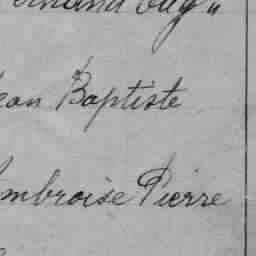 ean Baptiste
mbroise Pierre